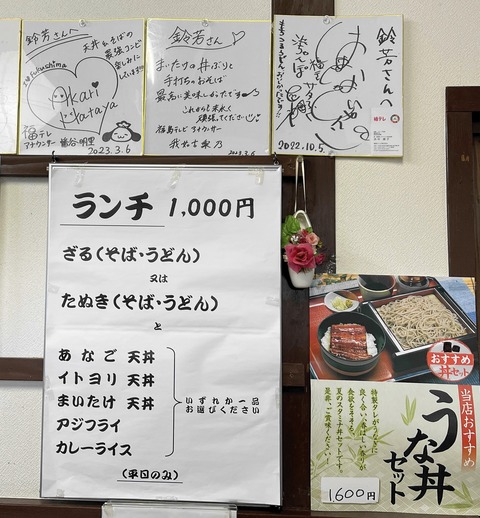 鈴芳さんへ
天丼もそばの
最強コンビ
I♡Fukushima
Akari
Hataya
福テレ
アナウンサー
2023.3.6
鈴芳さん♡
まいたけの丼ぶりと
手打ちのおそば
最高に美味しかったです
これからも末永く
頑張ってください
福島テレビ アナウンサー
2023.3.6
鈴芳さんへ
2022.10.5.
福テレ
ランチ 1,000円
ざる(そば・うどん)
又は
たぬき(そば・うどん)
と
あなご 天丼
イトヨリ 天丼
まいたけ 天丼
アジフライ
カレーライス
いずれか一品
お選びください
(平日のみ)
おすすめ
丼セット
当店おすすめ
うな丼
セット
特製タレがうなぎに
良く合い、香ばしい香りが
食欲をそそる。
夏のスタミナ丼セットです。
是非、ご賞味ください!
1,600円